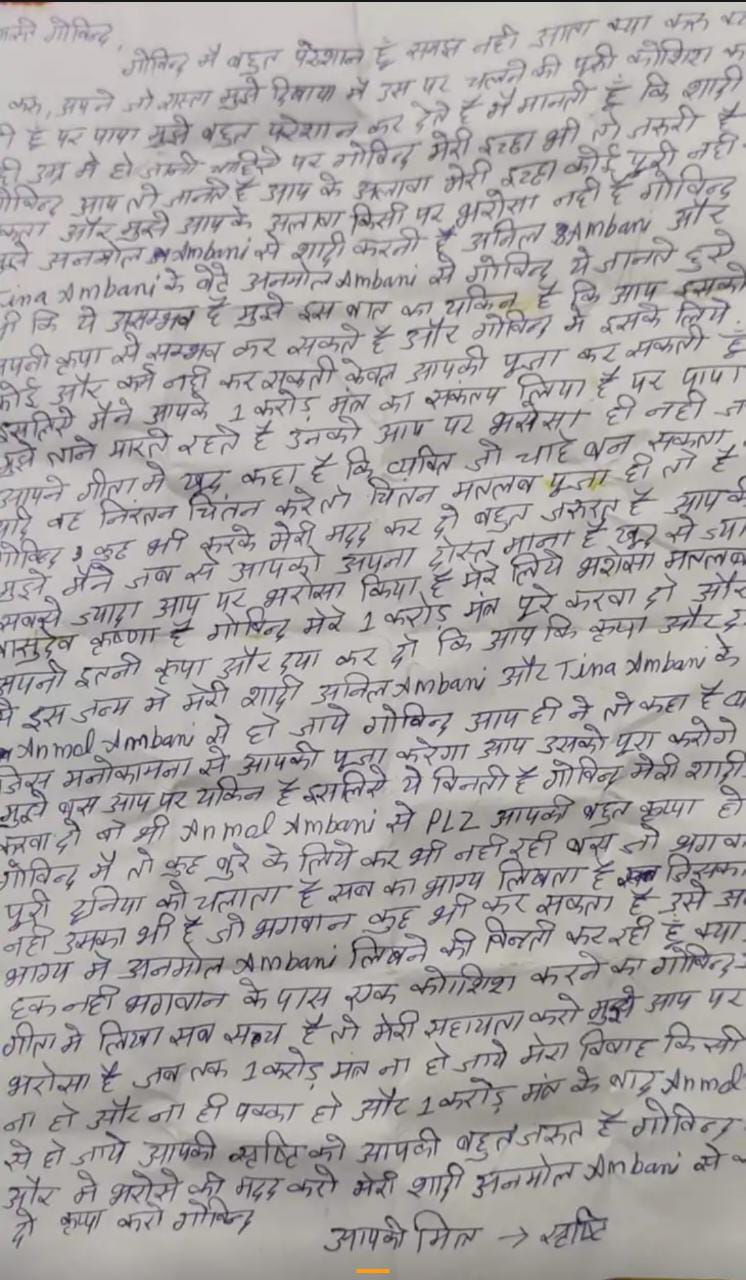 गोविन्द,
गोविन्द मै बहुत परेशान हूँ समझ नही आता क्या करू
करू, आपने जो रास्ता मुझे दिखाया मै उस पर चलने की पूरी कोशिश
है पर पापा मुझे बहुत परेशान कर देते है मै मानती हूँ कि शादी
उम्र मे हो जानी चाहिये पर गोविन्द मेरी इच्छा भी तो जरूरी है
गोविन्द आप तो जानते है आप के अलावा मेरी इच्छा कोई पूरी नही
और मुझे आपके अलावा किसी पर भरोसा नही है गोविन्द
मुझे अनमोल Ambani से शादी करनी है अनिल Ambani और
Tina Ambani के बेटे अनमोल Ambani से गोविन्द ये जानते हुऐ
भी कि ये असम्भव है मुझे इस बात का यकिन है कि आप इसको
अपनी कृपा से सम्भव कर सकते है और गोविन्द मै इसके लिये
कोई और कर्म नही कर सकती केवल आपकी पूजा कर सकती हूँ
इसलिये मैने आपके 1 करोड़ मंत्र का संकल्प लिया है पर पापा
मुझे ताने मारते रहते है उनको आप पर भरोसा ही नही
आपने गीता मे खुद कहा है कि व्यक्ति जो चाहे बन सकता
यदि वह निरंतन चिंतन करे तो चिंतन मतलब पूजा ही तो है
गोविन्द कुछ भी करके मेरी मदद कर दो बहुत जरूरत है आपकी
मुझे मैने जब से आपको अपना दोस्त माना है खुद से
सबसे ज्यादा आप पर भरोसा किया है मेरे लिये भरोसा मतलब
वासुदेव कृष्णा है गोविन्द मेरे 1 करोड़ मंत्र पूरे करवा दो और
अपनी इतनी कृपा और दया कर दो कि आप कि कृपा और
से इस जन्म मे मेरी शादी अनिल Ambani और Tina Ambani के
Anmol Ambani से हो जाये गोविन्द आप ही ने तो कहा है
जिस मनोकामना से आपकी पूजा करेगा आप उसको पूरा करोगे
मुझे बस आप पर यकिन है इसलिये ये विनती है गोविन्द मेरी शादी
करवा दो वो भी Anmol Ambani से PLZ आपकी बहुत कृपा हो
गोविन्द मै तो कुछ बुरे के लिये कर भी नही रही बस जो भगवान
पूरी दुनिया को चलाता है सब का भाग्य लिखता है जिसका
नही उसका भी है जो भगवान कुछ भी कर सकता है उसे
भाग्य मे अनमोल Ambani लिखने की विनती कर रही हूँ क्या
हक नही भगवान के पास एक कोशिश करने का गोविन्द
गीता मे लिखा सब सत्य है तो मेरी सहायता करो मुझे आप पर
भरोसा है जब तक 1 करोड़ मंत्र ना हो जाये मेरा विवाह किसी
ना हो और ना ही पक्का हो और 1 करोड़ मंत्र के बाद Anmol
से हो जाये आपकी सृष्टि को आपकी बहुत जरूरत है गोविन्द
और मे भरोसे की मदद करो मेरी शादी अनमोल Ambani से
दो कृपा करो गोविन्द
आपकी मित्र → सृष्टि